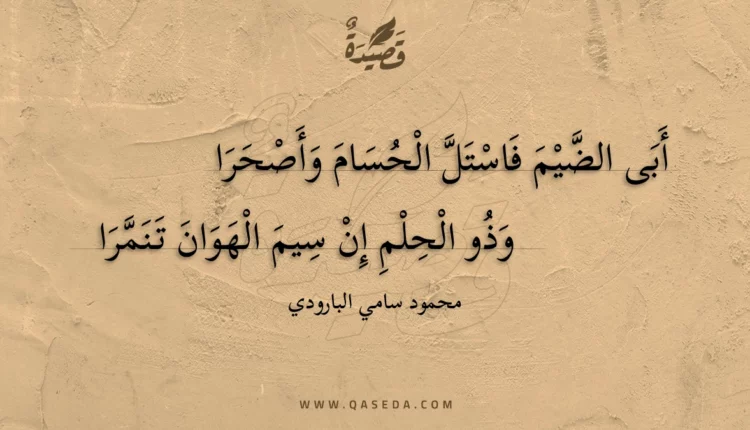 قَصِيدَةٌ
أَبَى الضَّيْمَ فَاسْتَلَّ الْحُسَامَ وَأَصْحَرَا
وَذُو الْحِلْمِ إِنْ سِيمَ الْهَوَانَ تَنَمَّرَا
محمود سامي البارودي
WWW.QASEDA.COM